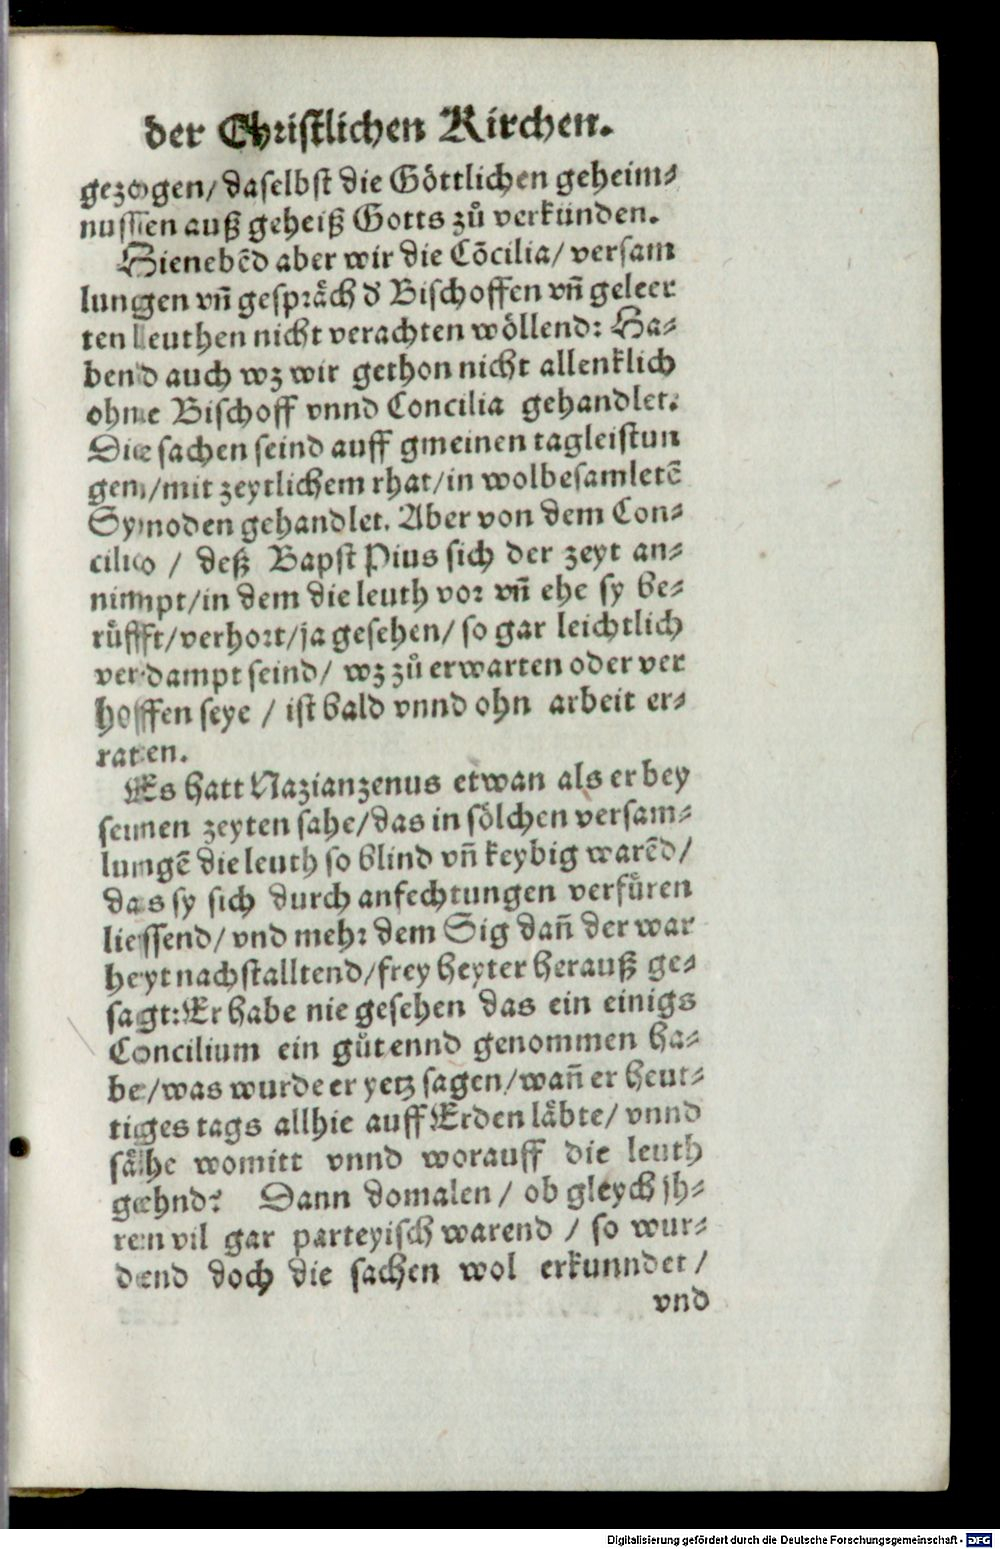 der Christlichen Kirchen.
gezogen/ daselbst die Göttlichen geheim⸗
nussen auß geheiß Gotts zů verkünden.
Hienebēd aber wir die Cōcilia/ versam
lungen vn̄ gespraͤch d' Bischoffen vn̄ geleer
ten leuthen nicht verachten wöllend: Ha⸗
bend auch wz wir gethon nicht allenklich
ohne Bischoff vnnd Concilia gehandlet.
Die sachen seind auff gmeinen tagleistun
gen/mit zeytlichem rhat/in wolbesamletē
Synoden gehandlet. Aber von dem Con⸗
cilio / deß Bapst Pius sich der zeyt an⸗
nimpt/in dem die leuth vor vn̄ ehe sy be⸗
rüfft/verhort/ja gesehen/ so gar leichtlich
verdampt seind/ wz zů erwarten oder ver
hoffen seye / ist bald vnnd ohn arbeit er⸗
raten.
Es hatt Nazianzenus etwan als er bey
seinen zeyten sahe/das in sölchen versam⸗
lungē die leuth so blind vn̄ keybig warēd/
das sy sich durch anfechtungen verfüren
liessend/ vnd mehr dem Sig dan̄ der war
heyt nachstalltend/frey heyter herauß ge⸗
sagt:Er habe nie gesehen das ein einigs
Concilium ein gůt ennd genommen ha⸗
be/was wurde er yetz sagen/wan̄ er heut⸗
tiges tags allhie auff Erden läbte/ vnnd
sähe womitt vnnd worauff die leuth
gehnd? Dann domalen / ob gleych jh⸗
ren vil gar parteyisch warend / so wur⸗
dend doch die sachen wol erkunndet /
vnd
Digitalisierung gefördert durch die Deutsche Forschungsgemeinschaft - DFG